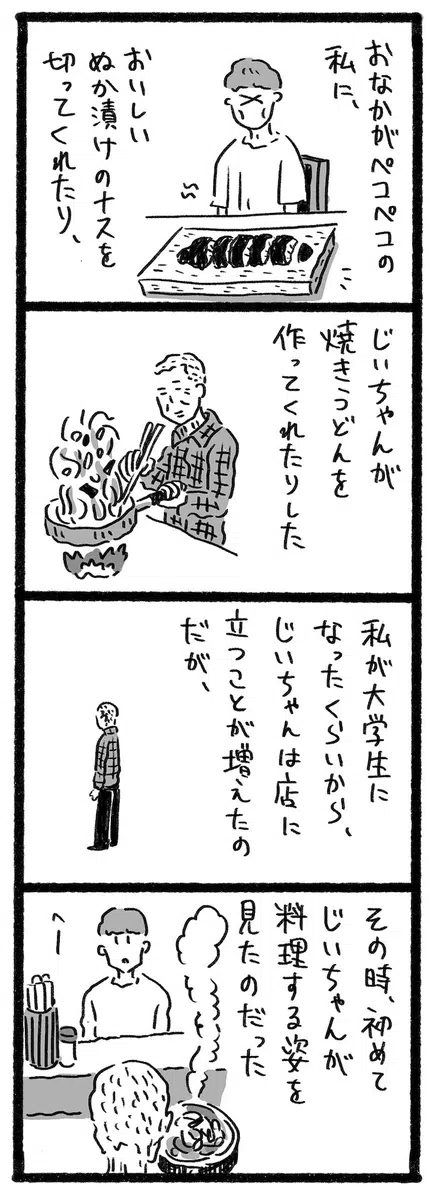 おなかがペコペコの
私に、
おいしい
ぬか漬けのナスを
切ってくれたり、
じいちゃんが
焼きうどんを
作ってくれたりした
私が大学生に
なったくらいから、
じいちゃんは店に
立つことが増えたの
だが、
その時、初めて
じいちゃんが
料理する姿を
見たのだった
へー